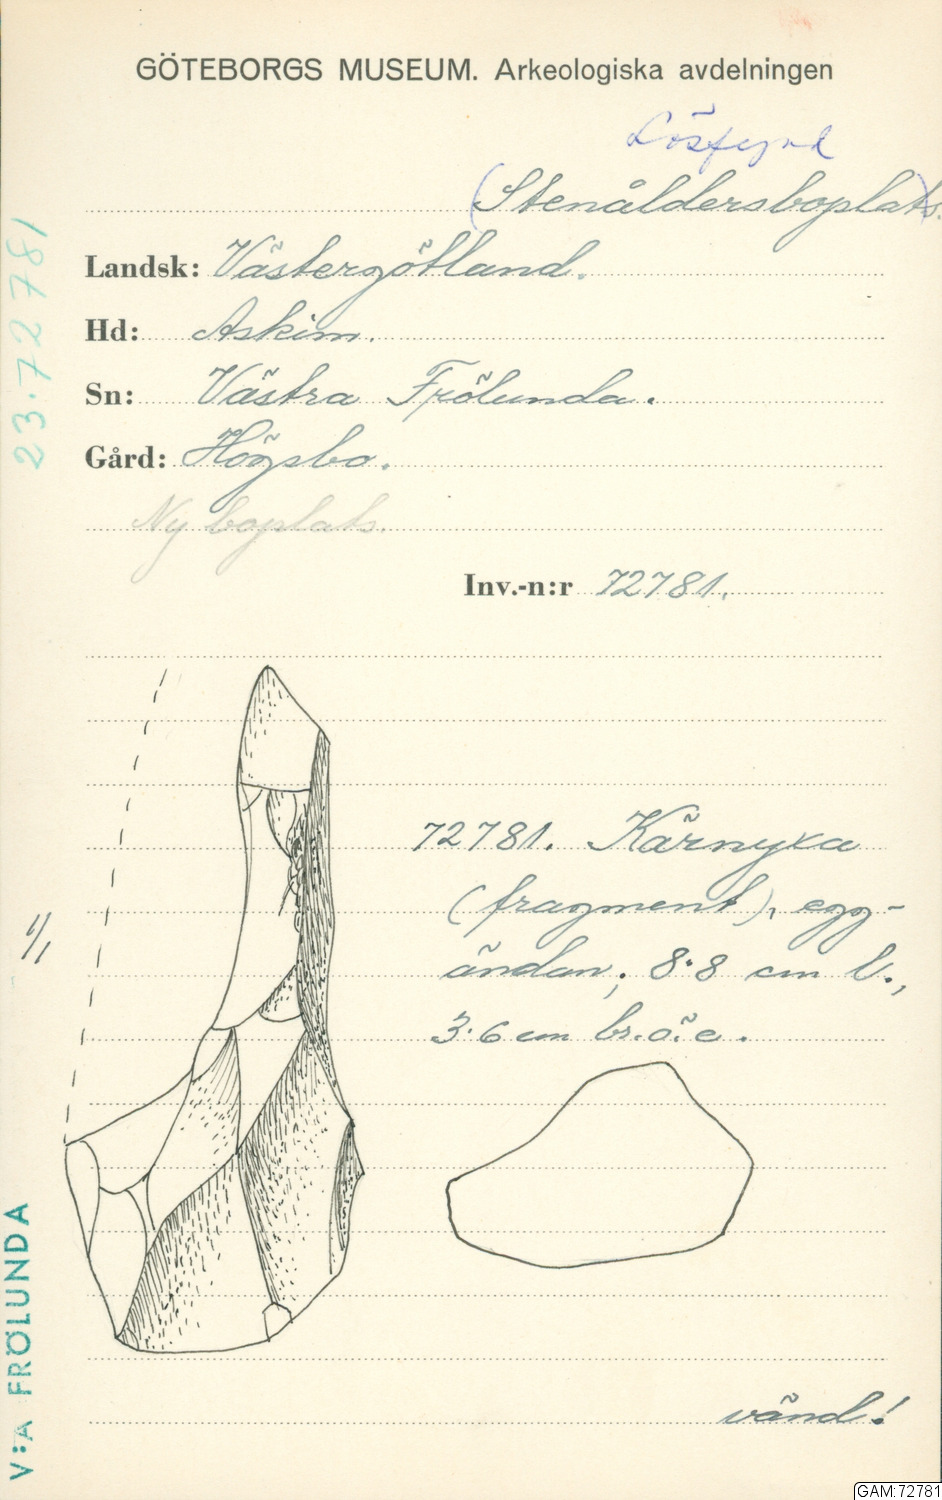 GÖTEBORGS MUSEUM. Arkeologiska avdelningen
Lösfynd
(Stenåldersboplats).
Landsk: Västergötland.
Hd: Askim.
Sn: Västra Frölunda.
Gård: Högsbo.
Ny boplats.
Inv.-n:r 72781.
23.72781
1/1
72781. Kärnyxa
(fragment), egg-
ändan; 8.8 cm l.,
3.6 cm br. ö. e.
vänd!
V:A FRÖLUNDA
GAM:72781